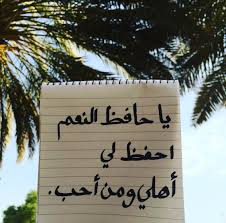 يا حافظ النعم
احفظ لي
أهلي ومن أحب.